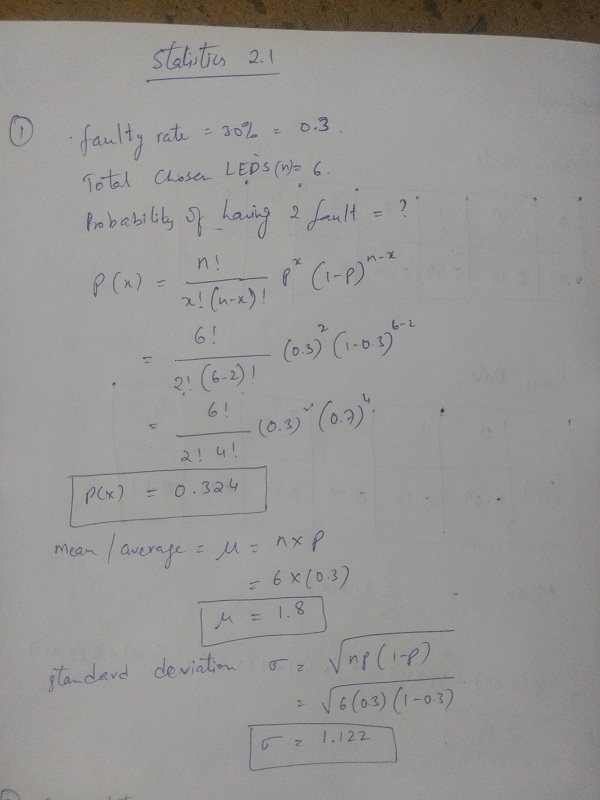 Statistics 2.1
① faulty rate = 30% = 0.3.
Total Chosen LEDS(n)= 6.
Probability of having 2 fault = ?
P(x) = n! / x!(n-x)! p^x (1-p)^n-x
= 6! / 2!(6-2)! (0.3)^2 (1-0.3)^6-2
= 6! / 2! 4! (0.3)^2 (0.7)^4
P(x) = 0.324
mean / average = μ = n x p
= 6 x (0.3)
μ = 1.8
standard deviation σ = √np(1-p)
= √6(0.3)(1-0.3)
σ = 1.122